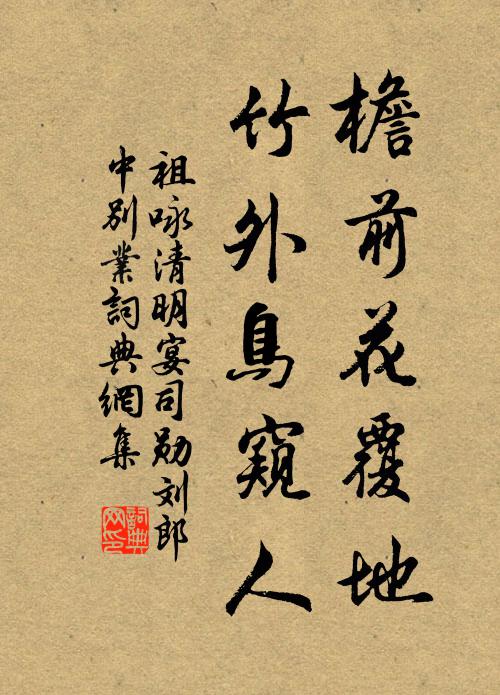 檐前花覆地
竹外鳥窺人
祖咏清明宴司勋刘郎
中别業詞典網集
詞典网印